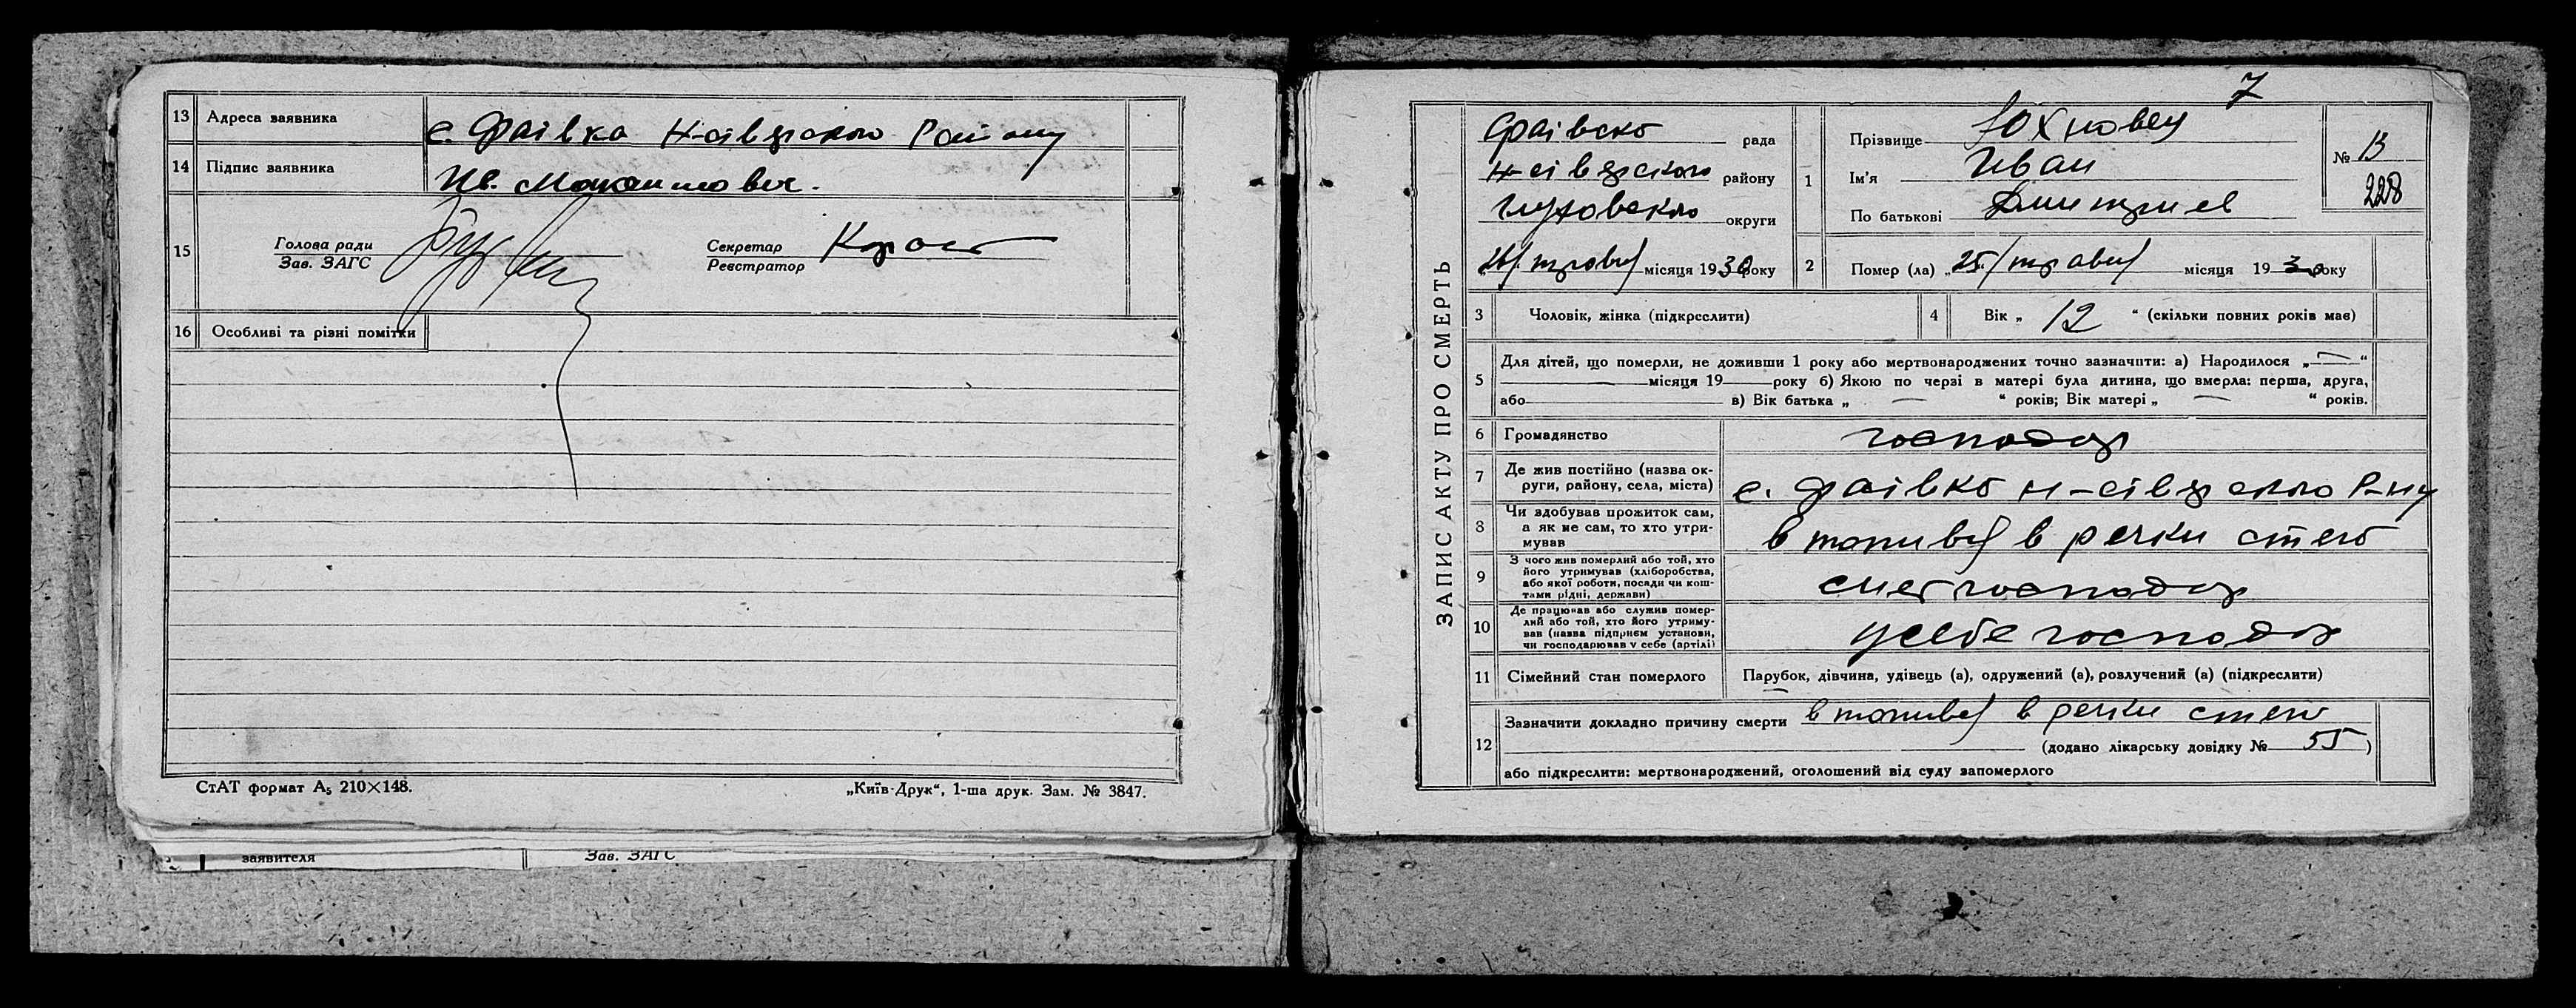 13 Адреса заявника с. Фаівка Н-сіверского Району
14 Підпис заявника Ив. Максимович.
15 Голова ради
Зав. ЗАГС
Секретар
Реєстратор
16 Особливі та різні помітки
СтАТ формат А5 210×148.
„Київ-Друк“, 1-ша друк. Зам. № 3847.
заявителя
Зав. ЗАГС
7
ЗАПИС АКТУ ПРО СМЕРТЬ
Фаівско рада
Н-сіверского району
Глуховского округи
26/травня місяця 1930 року
1 Прізвище Юхновец
Ім'я Иван
По батькові Дмитриев
№ 13
228
2 Помер (ла) „25“/травня місяця 1930 року
3 Чоловік, жінка (підкреслити)
4 Вік „ 12 “ (скільки повних років має)
5 Для дітей, що померли, не доживши 1 року або мертвонароджених точно зазначити: а) Народилося „—“
— місяця 19— року б) Якою по черзі в матері була дитина, що вмерла: перша, друга,
або — в) Вік батька „ — “ років; Вік матері „ — “ років.
6 Громадянство господар
7 Де жив постійно (назва ок-
руги, району, села, міста) с. Фаівко Н-сіверского Р-ну
8 Чи здобував прожиток сам,
а як не сам, то хто утри-
мував в речки
9 З чого жив померлий або той, хто
його утримував (хліборобства,
або якої роботи, посади чи кош-
тами рідні, держави) господар
10 Де працював або служив помер-
лий або той, хто його утриму-
вав (назва підприєм установи,
чи господарював у себе (артілі) усебе господар
11 Сімейний стан померлого Парубок, дівчина, удівець (а), одружений (а), розлучений (а) (підкреслити)
12 Зазначити докладно причину смерти в речки
(додано лікарську довідку № 55)
або підкреслити: мертвонароджений, оголошений від суду запомерлого